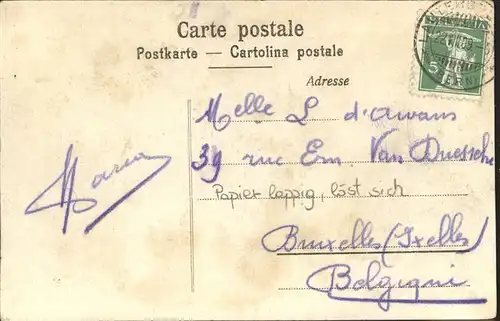 Carte postale
Postkarte — Cartolina postale
Adresse
Melle L d'Awans
39 rue Em Van Duessche
Papier lappig, löst sich
Maria
Bruxelles (Ixelles)
Belgiqui